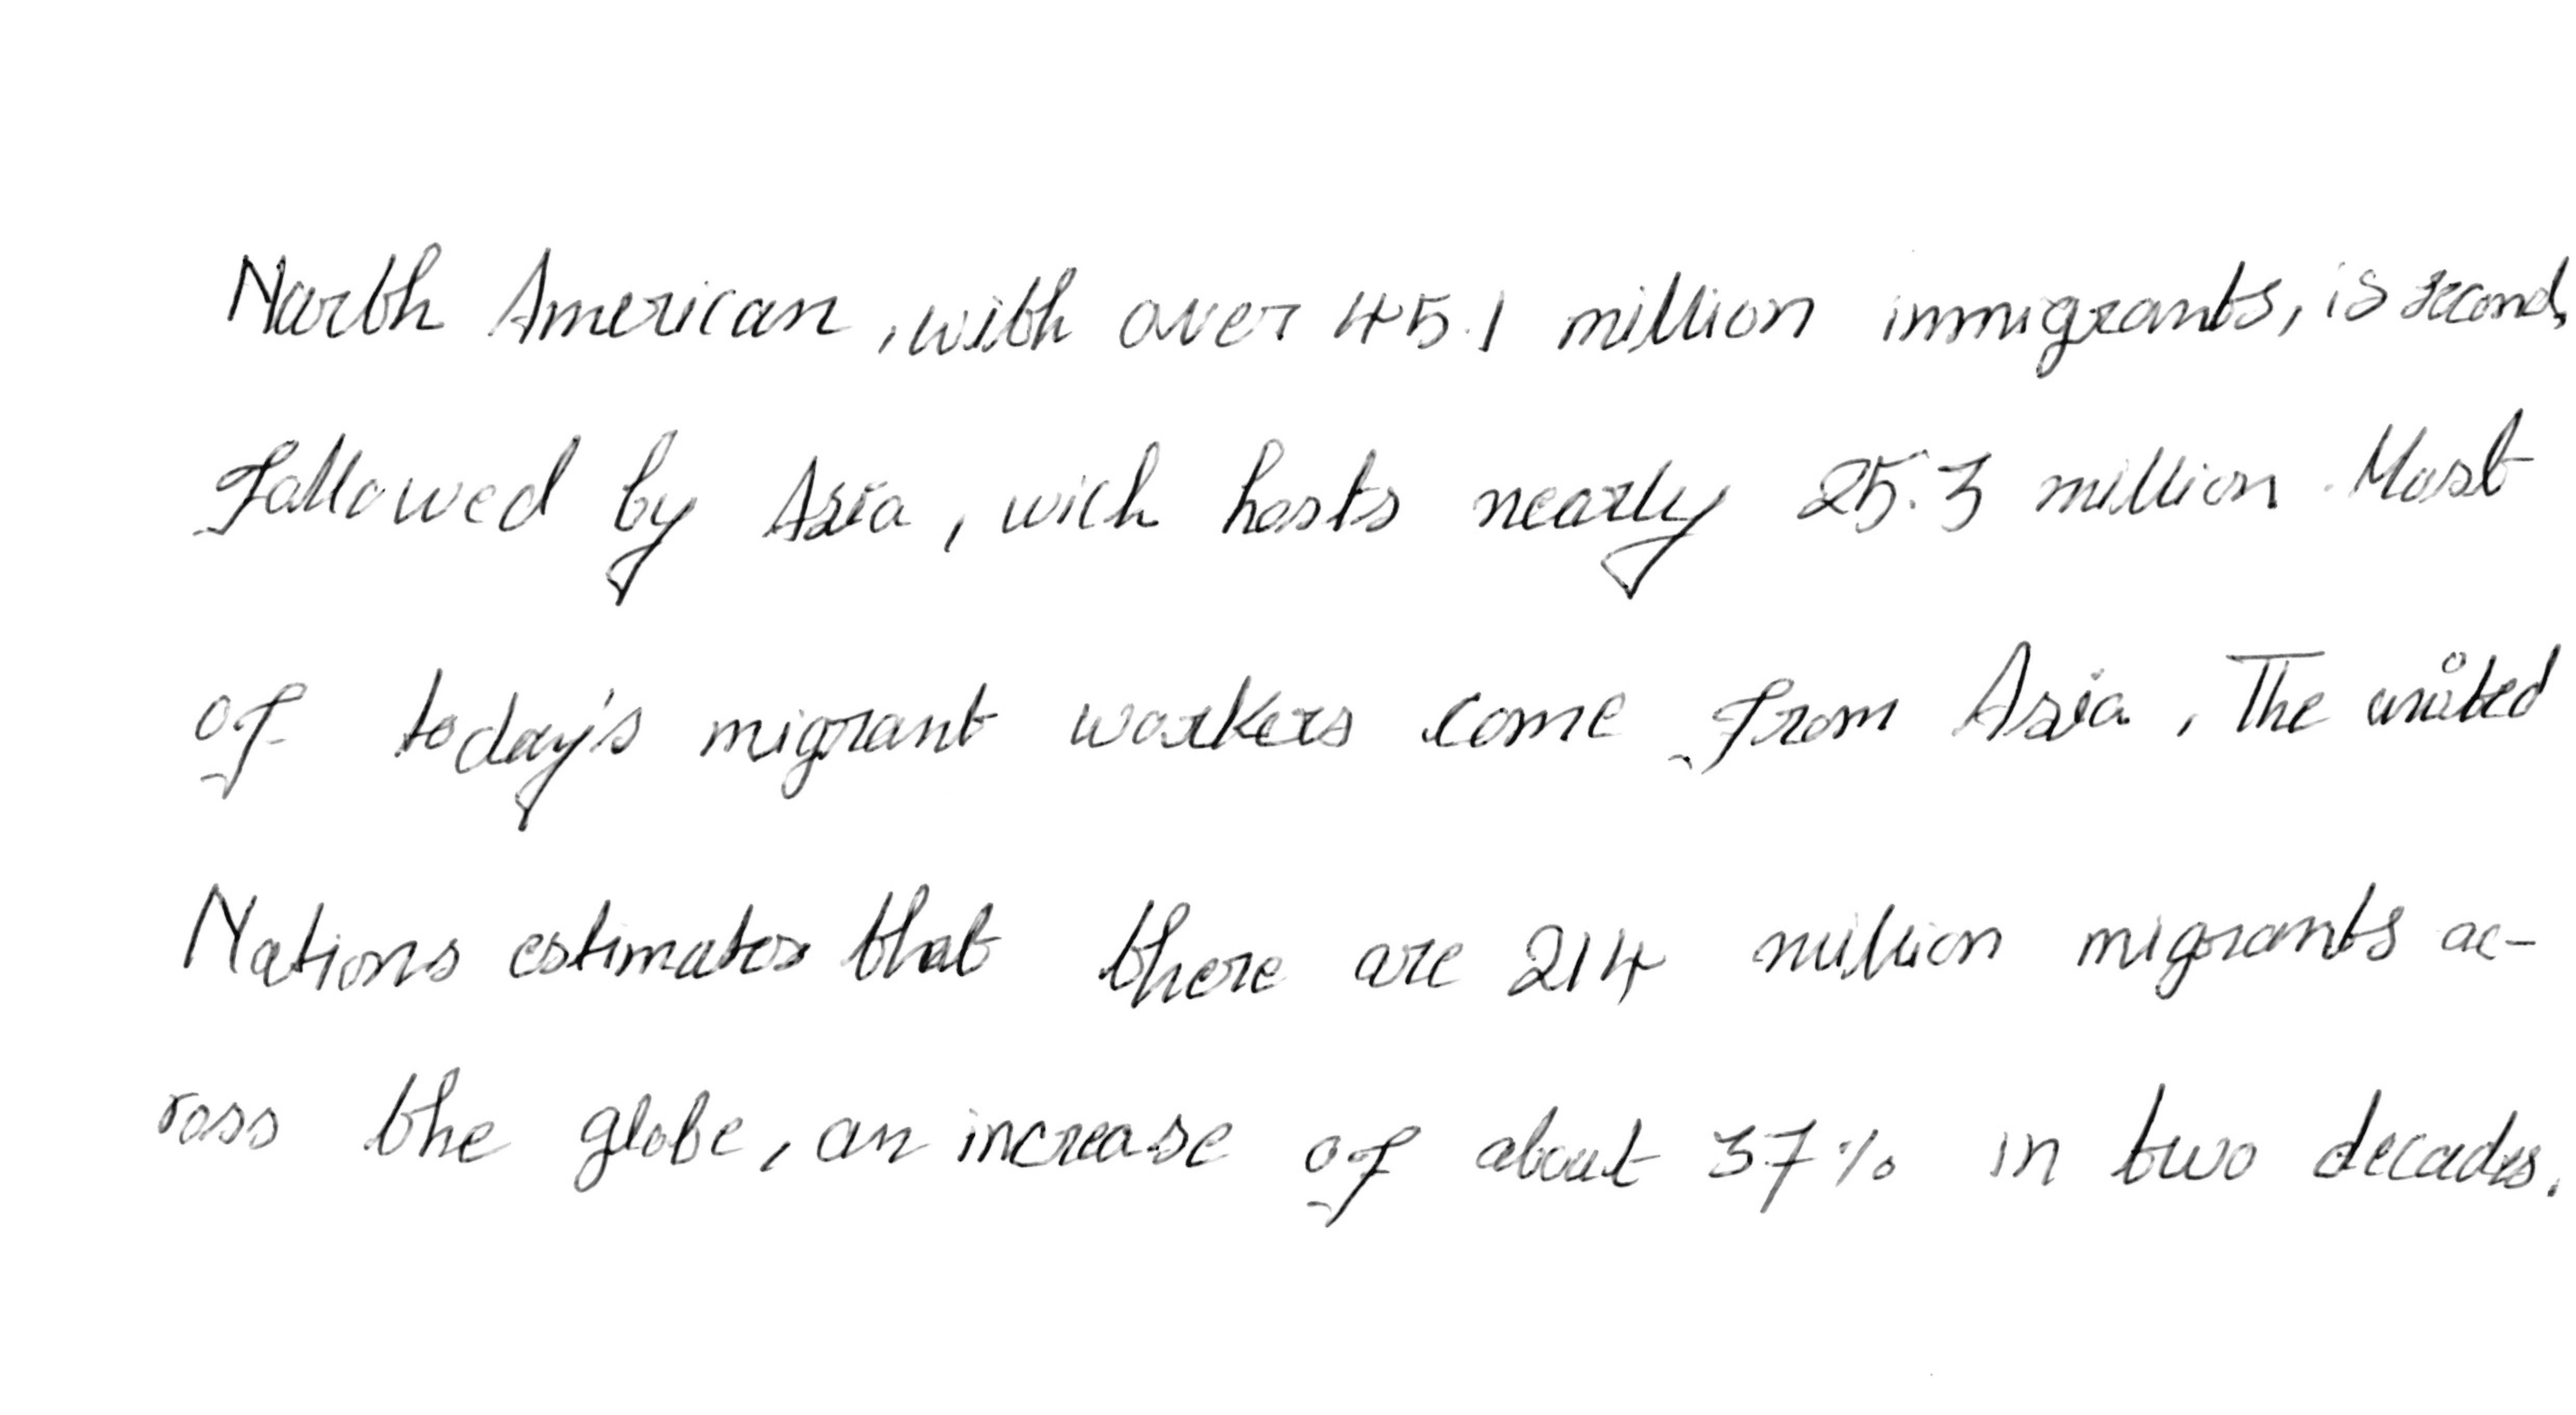 North American, with over 45.1 million immigrants, is second,
followed by Asia, wich hosts nearly 25.3 million. Most
of today's migrant workers come from Asia, The united
Nations estimates that there are 214 million migrants ac-
ross the globe, an increase of about 37% in two decades.